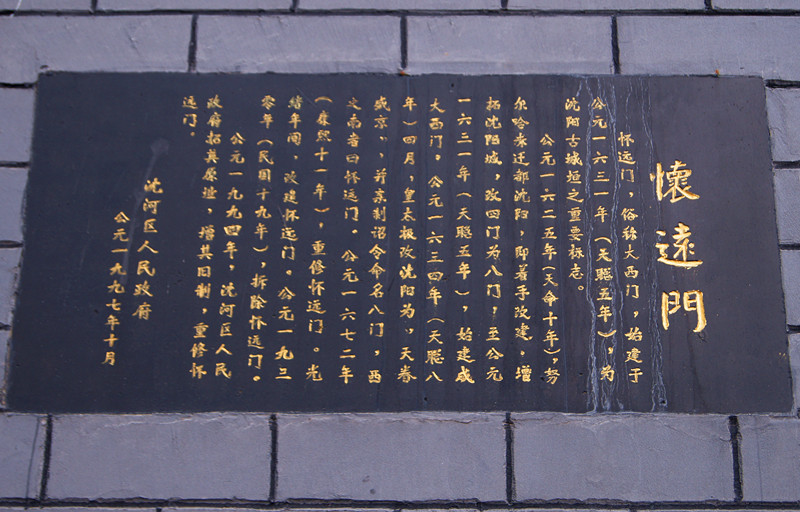 懷遠門
怀远门，俗称大西门，始建于
公元一六三一年（天聪五年），为
沈阳古城垣之重要标志。
公元一六二五年（天命十年），努
尔哈赤迁都沈阳，即着手改建。增
拓沈阳城，改四门为八门，至公元
一六三一年（天聪五年），始建成
大西门。公元一六三四年（天聪八
年）四月，皇太极改沈阳为，天眷
盛京，，并亲制诏令命名八门，西
之南者曰怀远门。公元一六七二年
（康熙十一年），重修怀远门。光
绪年间，改建怀远门。公元一九三
零年（民国十九年），拆除怀远门。
公元一九九四年，沈河区人民
政府拓其原址，增其旧制，重修怀
远门。
沈河区人民政府
公元一九九七年十月